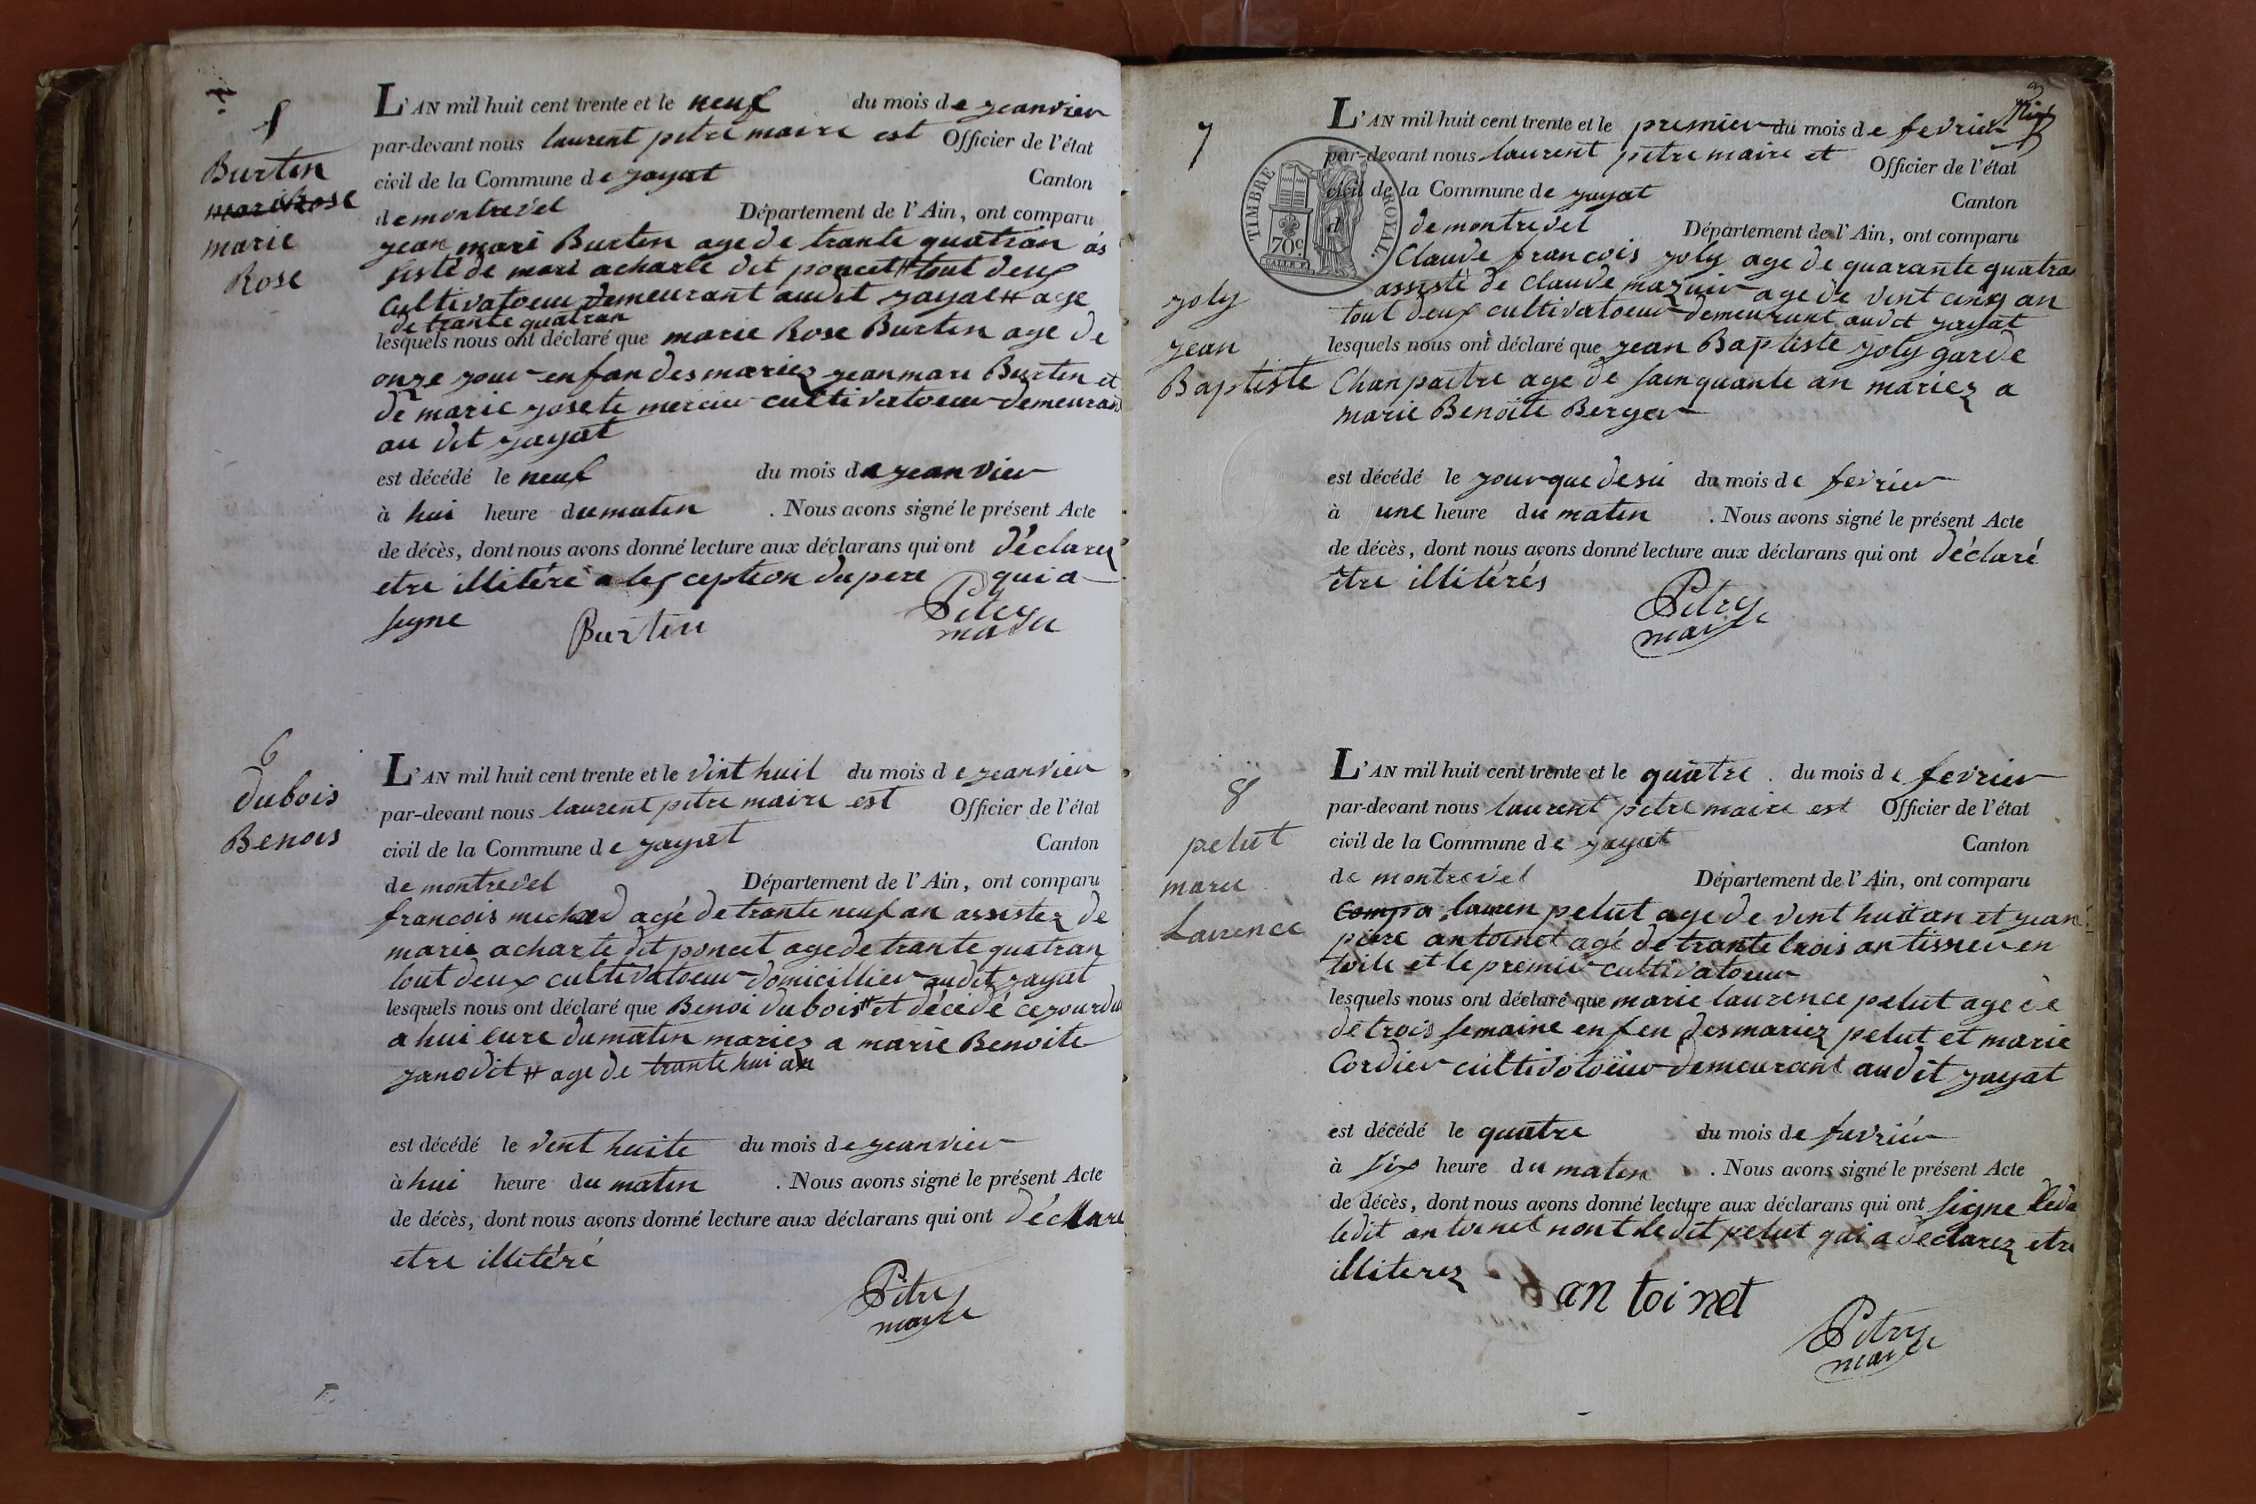 5
Burten
marie Rose
marie
Rose
L'AN mil huit cent trente et le neuf du mois de jeanvier
par-devant nous laurent pitre maire est Officier de l'état
civil de la Commune de jayat Canton
de montrevel Département de l'Ain, ont comparu
jean mari Burten age de trante quatran as
sisté de mari acharle dit poncet # tout deux
cultivatoeur demeurant audit jayat # age
de trante quatran
lesquels nous ont déclaré que marie Rose Burten age de
onze jour enfan des mariez jean mari Burten et
de marie josete mercier cultivatoeur demeurant
au dit jayat
est décédé le neuf du mois de jeanvier
à hui heure du maten . Nous avons signé le présent Acte
de décès, dont nous avons donné lecture aux déclarans qui ont déclarez
etre illitéré a lesception du pere qui a
signe Burtin Pitre
maire
6
dubois
Benois
L'AN mil huit cent trente et le vint huit du mois de jeanvier
par-devant nous laurent pitre maire est Officier de l'état
civil de la Commune de jayat Canton
de montrevel Département de l'Ain, ont comparu
francois michod agé de trante neuf an assistez de
marie acharle dit poncet age de trante quatran
tout deux cultivatoeur domicillier audit jayat
lesquels nous ont déclaré que Benoi dubois # et décédé ce jourdui
a hui eure dumatin mariez a marie Benoite
janodit # age de trante hui an
est décédé le vent huite du mois de jeanvier
à hui heure du maten . Nous avons signé le présent Acte
de décès, dont nous avons donné lecture aux déclarans qui ont déclare
etre illitéré
Pitre
maire
7
joly
jean
Baptiste
TIMBRE ROYAL
70c
L'AN mil huit cent trente et le premier du mois de fevrier
par-devant nous laurent pitre maire et Officier de l'état
civil de la Commune de jayat Canton
d de montrevel Département de l'Ain, ont comparu
Claude francois joly age de quarante quatran
assisté de claude mazuir age de vint cinq an
tout deux cultivatoeur demeurant audit jayat
lesquels nous ont déclaré que jean Baptiste joly garde
Chanpaitre age de sainquante an mariez a
marie Benoite Berger
est décédé le jour que desu du mois de fevrier
à une heure du maten . Nous avons signé le présent Acte
de décès, dont nous avons donné lecture aux déclarans qui ont déclaré
être illitérés
Pitre
maire
8
pelut
marie
Laurence
L'AN mil huit cent trente et le quatre . du mois de fevrier
par-devant nous laurent pitre maire est Officier de l'état
civil de la Commune de jayat Canton
de montrevel Département de l'Ain, ont comparu
compa lauren pelut age de vent huit an et jean
piere antoinet agé de trante trois an tisseur en
toile et le premier cultivatoeur
lesquels nous ont déclaré que marie laurence pelut agee
de trois semaine enfen des mariez pelut et marie
Cordier cultivatoeur demeurant audit jayat
est décédé le quatre du mois de fevrier
à six heure du maten . Nous avons signé le présent Acte
de décès, dont nous avons donné lecture aux déclarans qui ont signe
ledit antoinet nont ledit pelut qui a declarez etre
illiterez
antoinet
Pitre
maire